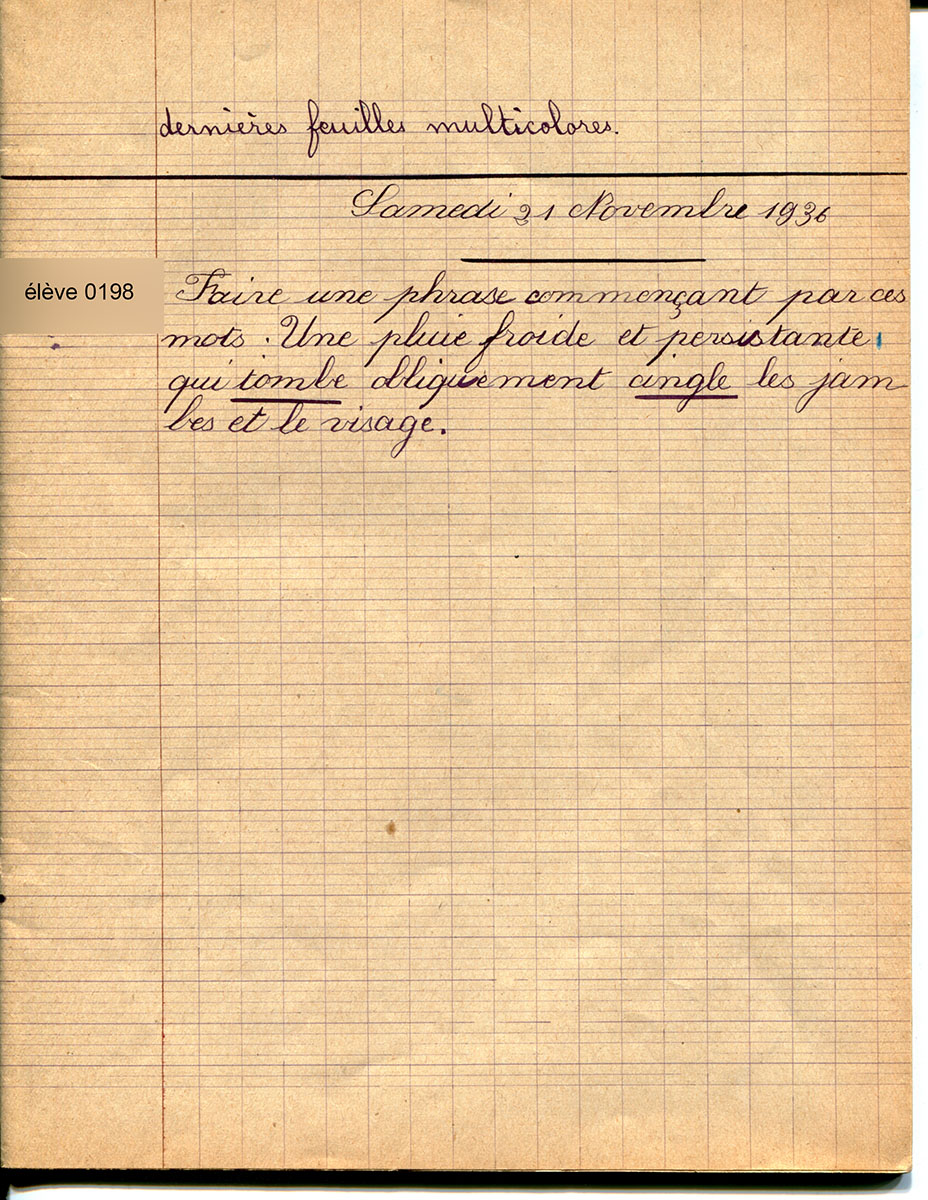 dernières feuilles multicolores.
Samedi 21 Novembre 1936
élève 0198
Faire une phrase commençant par ces
mots. Une pluie froide et persistante,
qui tombe obliquement cingle les jam
bes et le visage.